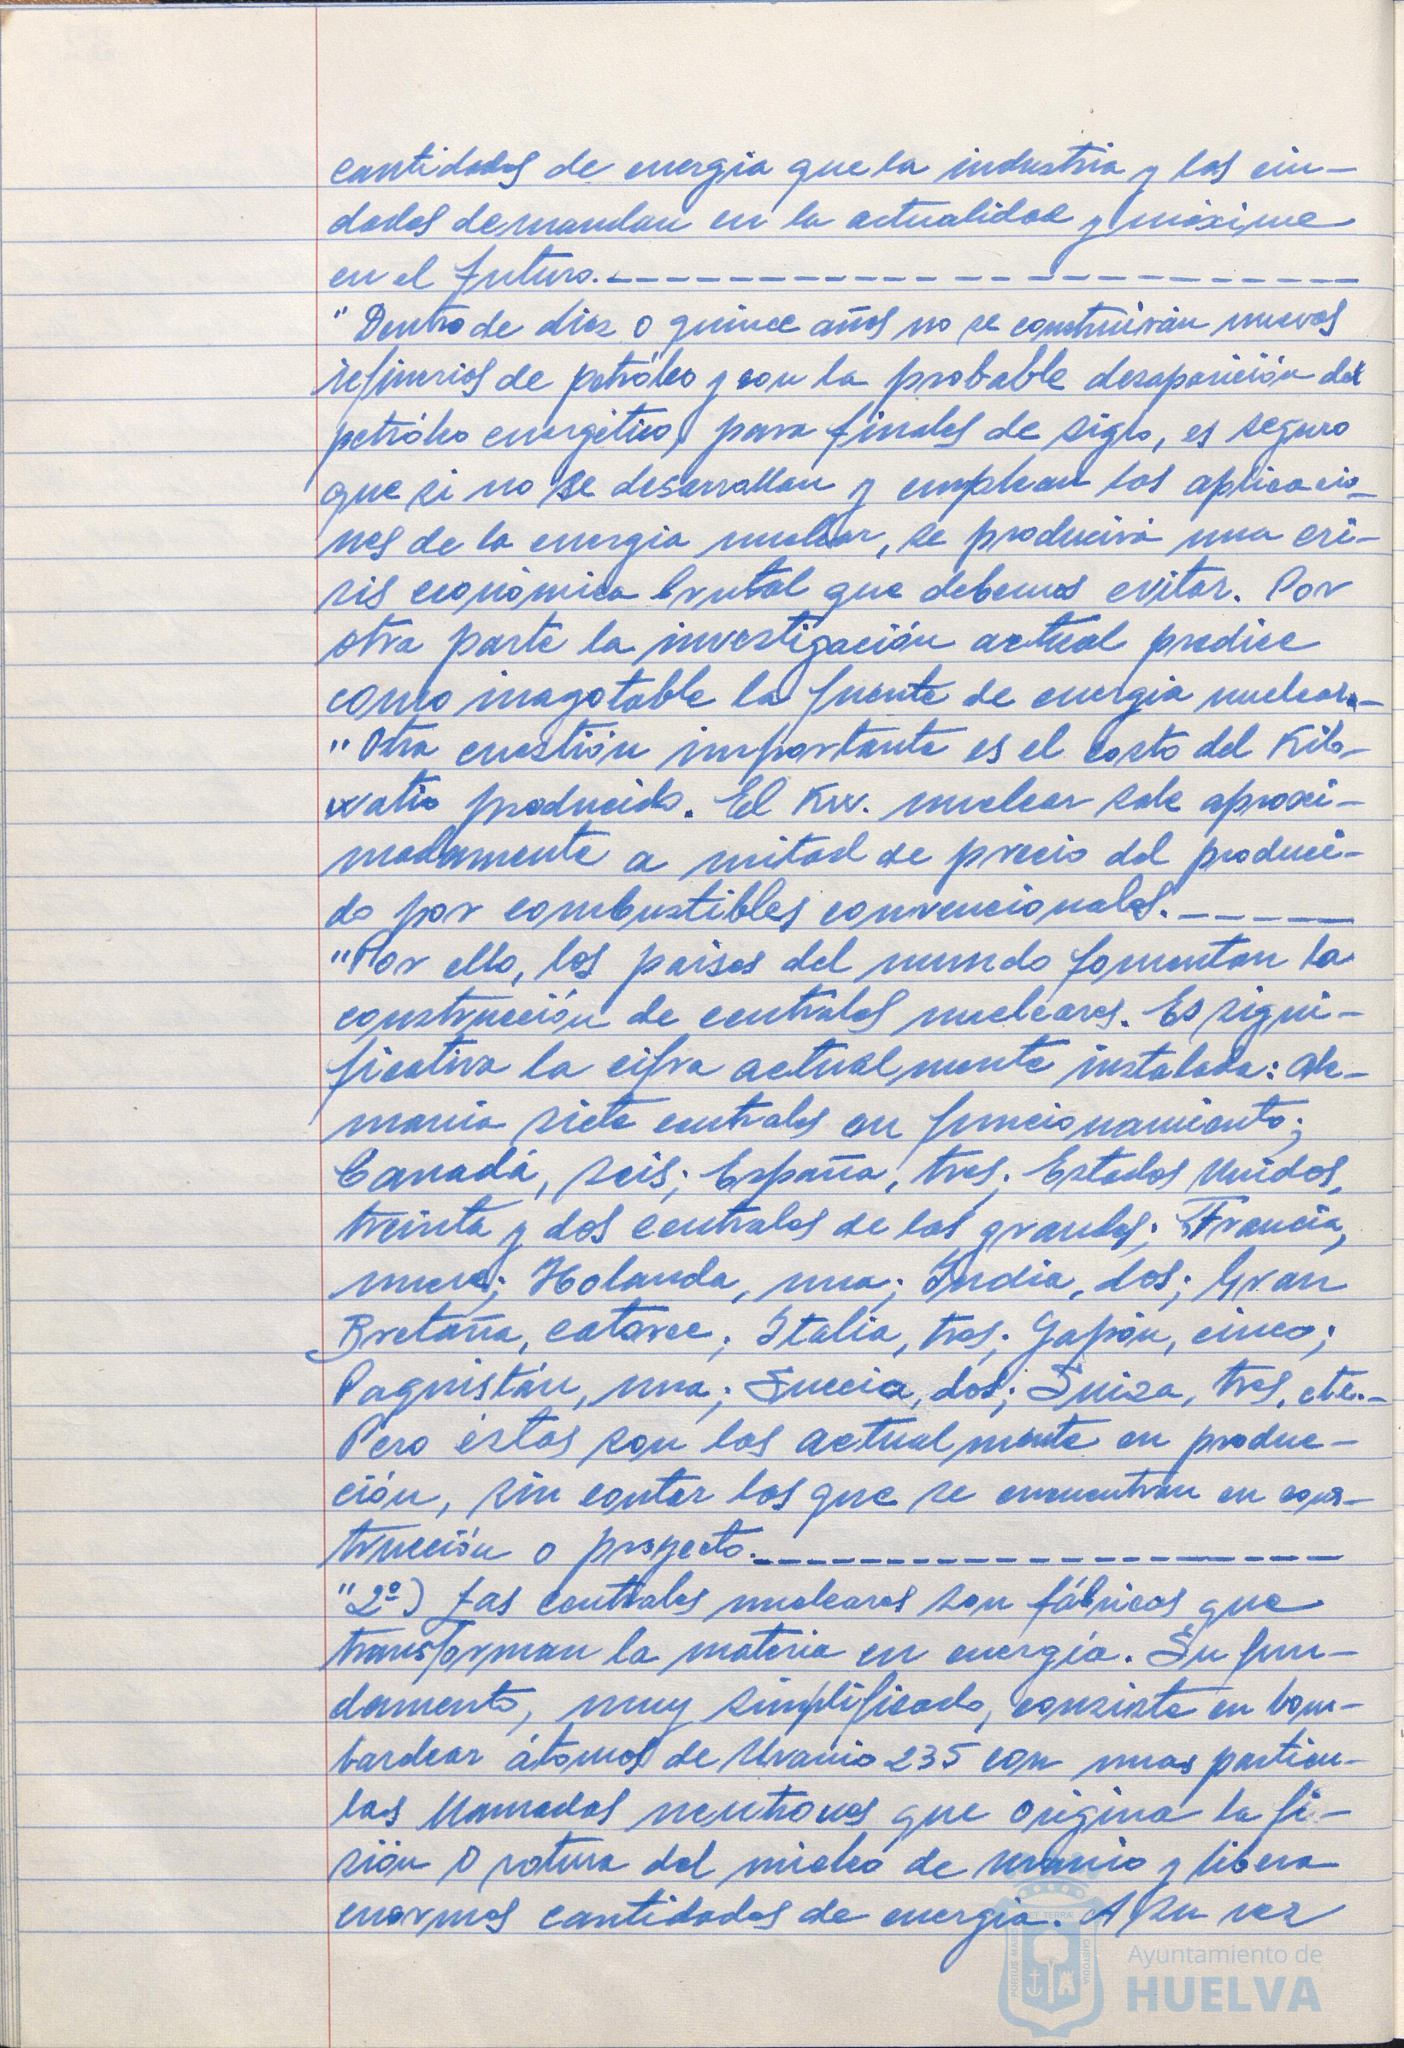 cantidades de energía que la industria y las ciu-
dades demandan en la actualidad y máxime
en el futuro.
"Dentro de diez o quince años no se construirán nuevas
refinerías de petróleo y con la probable desaparición del
petróleo energético, para finales de siglo, es seguro
que si no se desarrollan y emplean las aplicacio-
nes de la energía nuclear, se producirá una cri-
sis económica brutal que debemos evitar. Por
otra parte la investigación actual predice
como inagotable la fuente de energía nuclear.-
"Otra cuestión importante es el costo del Kilo-
watio producido. El Kw. nuclear sale aproxi-
madamente a mitad de precio del produci-
do por combustibles convencionales.
"Por ello, los países del mundo fomentan la
construcción de centrales nucleares. Es signi-
ficativa la cifra actualmente instalada: Ale-
mania siete centrales en funcionamiento;
Canadá, seis; España, tres; Estados Unidos,
treinta y dos centrales de las grandes; Francia,
nueve; Holanda, una; India, dos; Gran
Bretaña, catorce; Italia, tres; Japón, cinco;
Paquistán, una; Suecia, dos; Suiza, tres, etc.-
Pero éstas son las actualmente en produc-
ción, sin contar las que se encuentran en cons-
trucción o proyecto.
"2º) Las centrales nucleares son fábricas que
transforman la materia en energía. Su fun-
damento, muy simplificado, consiste en bom-
bardear átomos de Uranio 235 con unas partícu-
las llamadas neutrones que origina la fi-
sión o rotura del núcleo de uranio y libera
enormes cantidades de energía. A su vez
PORTUS MARIS ET TERRAE CUSTODIA
Ayuntamiento de
HUELVA